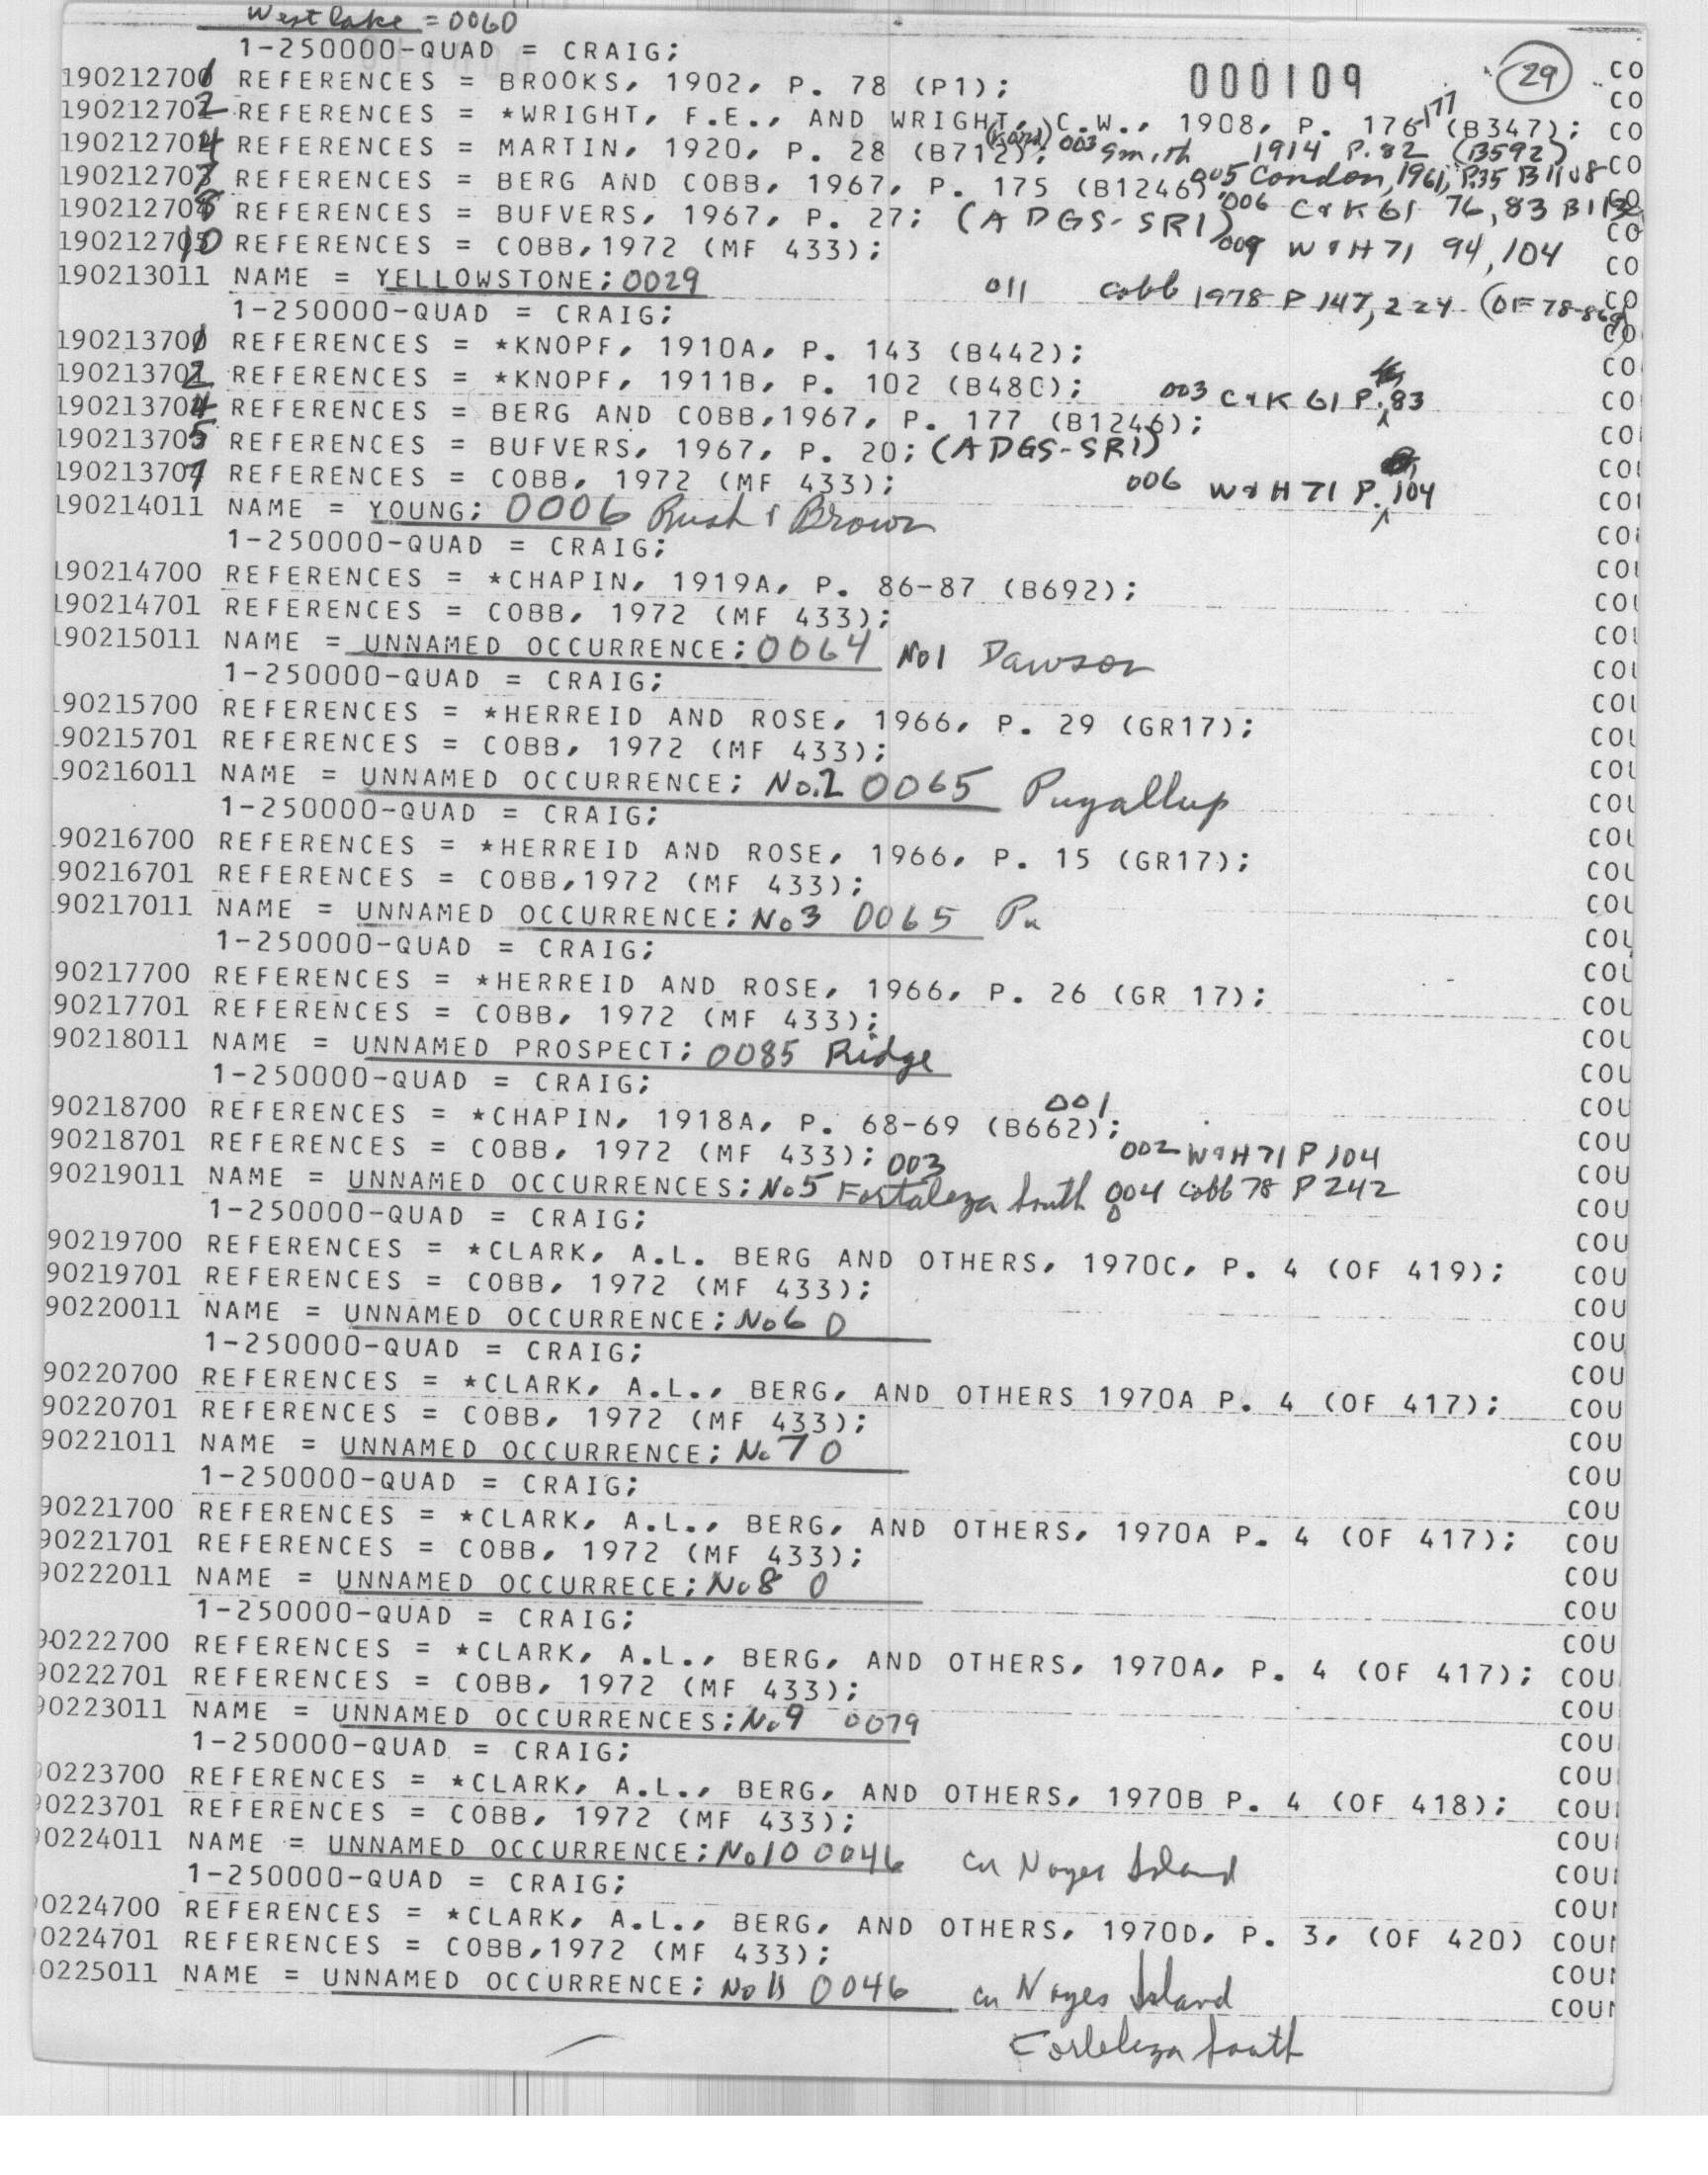 West lake = 0060
1-250000-QUAD = CRAIG;
190212701 REFERENCES = BROOKS, 1902, P. 78 (P1); 000109 29 CO
190212702 REFERENCES = *WRIGHT, F.E., AND WRIGHT, C.W., 1908, P. 176-177 (B347); CO
190212704 REFERENCES = MARTIN, 1920, P. 28 (B712); 003 Smith 1914 P.82 (B592) CO
190212707 REFERENCES = BERG AND COBB, 1967, P. 175 (B1246) 005 Condon, 1961, P35 B1108 CO
190212708 REFERENCES = BUFVERS, 1967, P. 27; (ADGS-SRI) 006 C&K 61 76,83 CO
190212710 REFERENCES = COBB,1972 (MF 433); 009 W&H 71 94,104 CO
190213011 NAME = YELLOWSTONE; 0029 011 Cobb 1978 P 147, 224 (OF 78-869) CO
1-250000-QUAD = CRAIG; CO
190213701 REFERENCES = *KNOPF, 1910A, P. 143 (B442); CO
190213702 REFERENCES = *KNOPF, 1911B, P. 102 (B480); 003 C&K 61 P. 83 CO
190213704 REFERENCES = BERG AND COBB,1967, P. 177 (B1246); CO
190213705 REFERENCES = BUFVERS, 1967, P. 20; (ADGS-SRI) CO
190213707 REFERENCES = COBB, 1972 (MF 433); 006 W&H 71 P. 104 COU
190214011 NAME = YOUNG; 0006 Rush & Brown COU
1-250000-QUAD = CRAIG; COU
190214700 REFERENCES = *CHAPIN, 1919A, P. 86-87 (B692); COU
190214701 REFERENCES = COBB, 1972 (MF 433); COU
190215011 NAME = UNNAMED OCCURRENCE; 0064 No1 Dawson COU
1-250000-QUAD = CRAIG; COU
190215700 REFERENCES = *HERREID AND ROSE, 1966, P. 29 (GR17); COU
190215701 REFERENCES = COBB, 1972 (MF 433); COU
190216011 NAME = UNNAMED OCCURRENCE; No.2 0065 Puyallup COU
1-250000-QUAD = CRAIG; COU
90216700 REFERENCES = *HERREID AND ROSE, 1966, P. 15 (GR17); COU
90216701 REFERENCES = COBB,1972 (MF 433); COU
90217011 NAME = UNNAMED OCCURRENCE; No3 0065 Pu COU
1-250000-QUAD = CRAIG; COU
90217700 REFERENCES = *HERREID AND ROSE, 1966, P. 26 (GR 17); COU
90217701 REFERENCES = COBB, 1972 (MF 433); COU
90218011 NAME = UNNAMED PROSPECT; 0085 Ridge COU
1-250000-QUAD = CRAIG; COU
90218700 REFERENCES = *CHAPIN, 1918A, P. 68-69 (B662); 001 COU
90218701 REFERENCES = COBB, 1972 (MF 433); 003 002 W&H 71 P 104 COU
90219011 NAME = UNNAMED OCCURRENCES; No5 Fortaleza South 004 Cobb 78 P 242 COU
1-250000-QUAD = CRAIG; COU
90219700 REFERENCES = *CLARK, A.L. BERG AND OTHERS, 1970C, P. 4 (OF 419); COU
90219701 REFERENCES = COBB, 1972 (MF 433); COU
90220011 NAME = UNNAMED OCCURRENCE; No6 0 COU
1-250000-QUAD = CRAIG; COU
90220700 REFERENCES = *CLARK, A.L., BERG, AND OTHERS 1970A P. 4 (OF 417); COU
90220701 REFERENCES = COBB, 1972 (MF 433); COU
90221011 NAME = UNNAMED OCCURRENCE; No 7 0 COU
1-250000-QUAD = CRAIG; COU
90221700 REFERENCES = *CLARK, A.L., BERG, AND OTHERS, 1970A P. 4 (OF 417); COU
90221701 REFERENCES = COBB, 1972 (MF 433); COU
90222011 NAME = UNNAMED OCCURRECE; No8 0 COU
1-250000-QUAD = CRAIG; COU
90222700 REFERENCES = *CLARK, A.L., BERG, AND OTHERS, 1970A, P. 4 (OF 417); COU
90222701 REFERENCES = COBB, 1972 (MF 433); COU
90223011 NAME = UNNAMED OCCURRENCES; No.9 0079 COU
1-250000-QUAD = CRAIG; COU
90223700 REFERENCES = *CLARK, A.L., BERG, AND OTHERS, 1970B P. 4 (OF 418); COU
90223701 REFERENCES = COBB, 1972 (MF 433); COU
90224011 NAME = UNNAMED OCCURRENCE; No10 0046 Cu Noyes Island COU
1-250000-QUAD = CRAIG; COU
0224700 REFERENCES = *CLARK, A.L., BERG, AND OTHERS, 1970D, P. 3, (OF 420) COUN
0224701 REFERENCES = COBB,1972 (MF 433); COUN
0225011 NAME = UNNAMED OCCURRENCE; No 11 0046 Cu Noyes Island COUN
Forteleza South